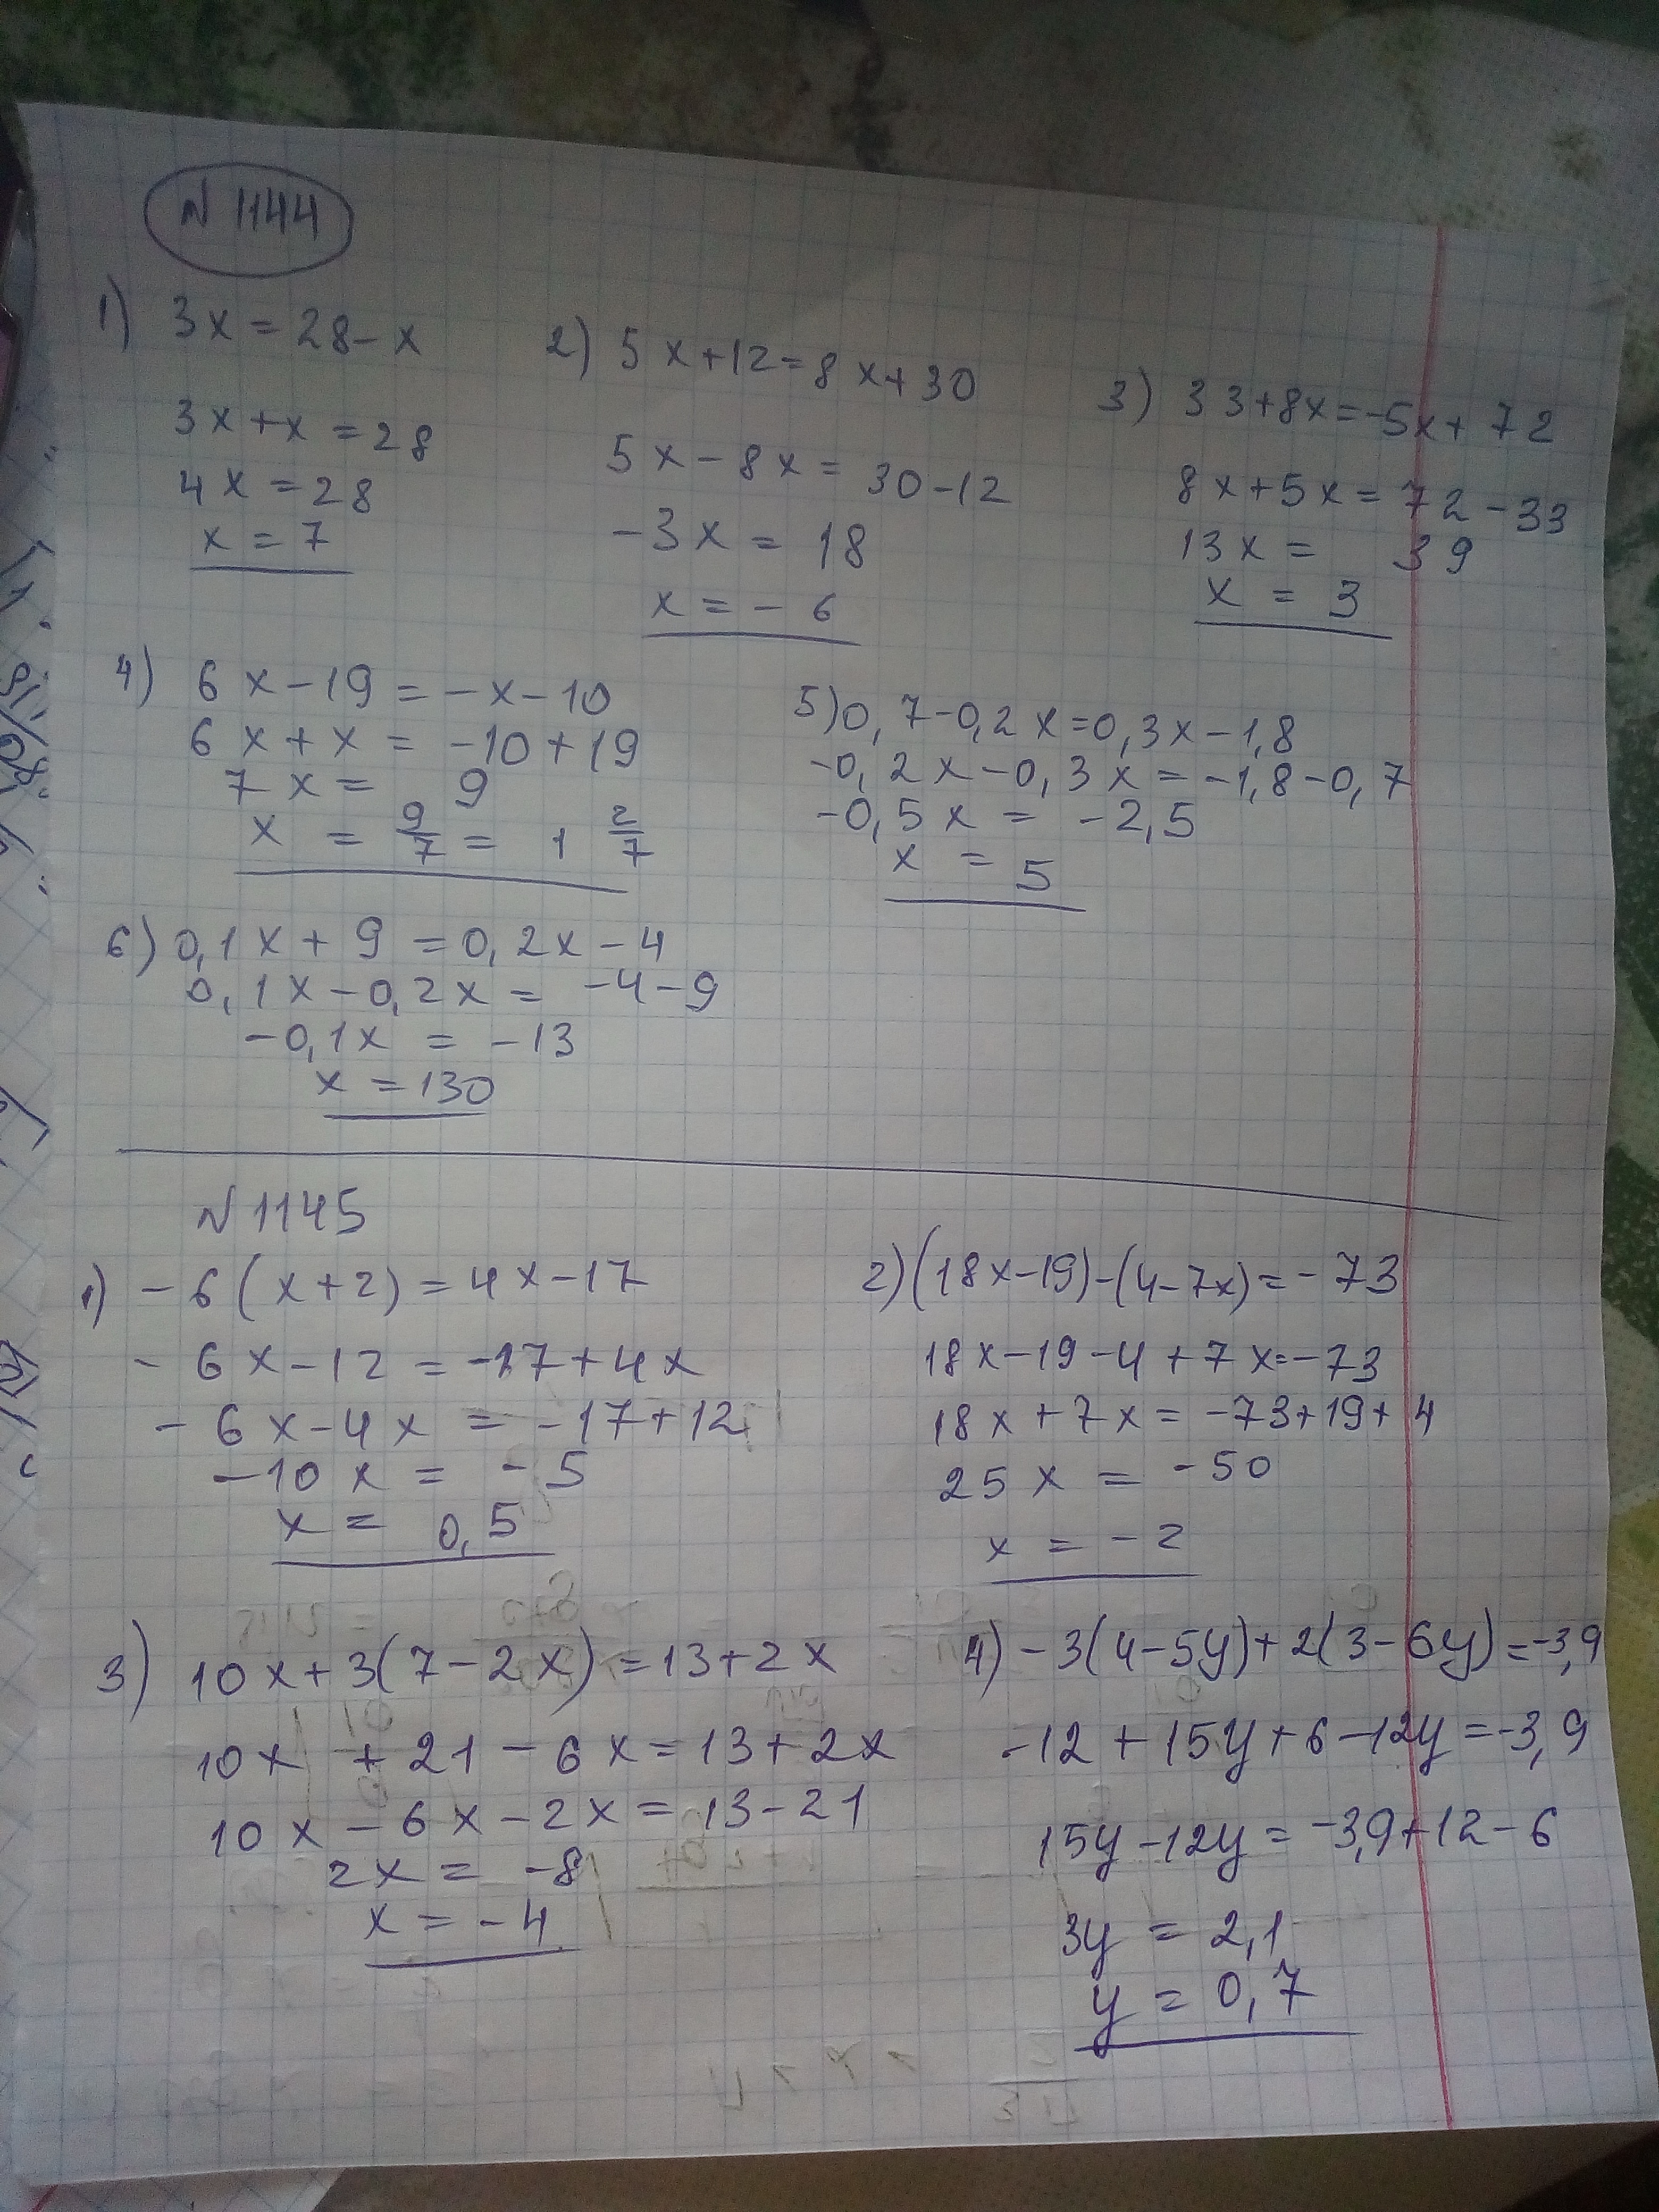 N 1144
1) 3x = 28 - x
3x + x = 28
4x = 28
x = 7
2) 5x + 12 = 8x + 30
5x - 8x = 30 - 12
-3x = 18
x = - 6
3) 33 + 8x = -5x + 72
8x + 5x = 72 - 33
13x = 39
x = 3
4) 6x - 19 = -x - 10
6x + x = -10 + 19
7x = 9
x = 9/7 = 1 2/7
5) 0,7 - 0,2x = 0,3x - 1,8
-0,2x - 0,3x = -1,8 - 0,7
-0,5x = -2,5
x = 5
6) 0,1x + 9 = 0,2x - 4
0,1x - 0,2x = -4 - 9
-0,1x = -13
x = 130
N 1145
1) -6(x + 2) = 4x - 17
-6x - 12 = -17 + 4x
-6x - 4x = -17 + 12
-10x = -5
x = 0,5
2) (18x - 19) - (4 - 7x) = -73
18x - 19 - 4 + 7x = -73
18x + 7x = -73 + 19 + 4
25x = -50
x = -2
3) 10x + 3(7 - 2x) = 13 + 2x
10x + 21 - 6x = 13 + 2x
10x - 6x - 2x = 13 - 21
2x = -8
x = -4
4) -3(4 - 5y) + 2(3 - 6y) = -3,9
-12 + 15y + 6 - 12y = -3,9
15y - 12y = -3,9 + 12 - 6
3y = 2,1
y = 0,7